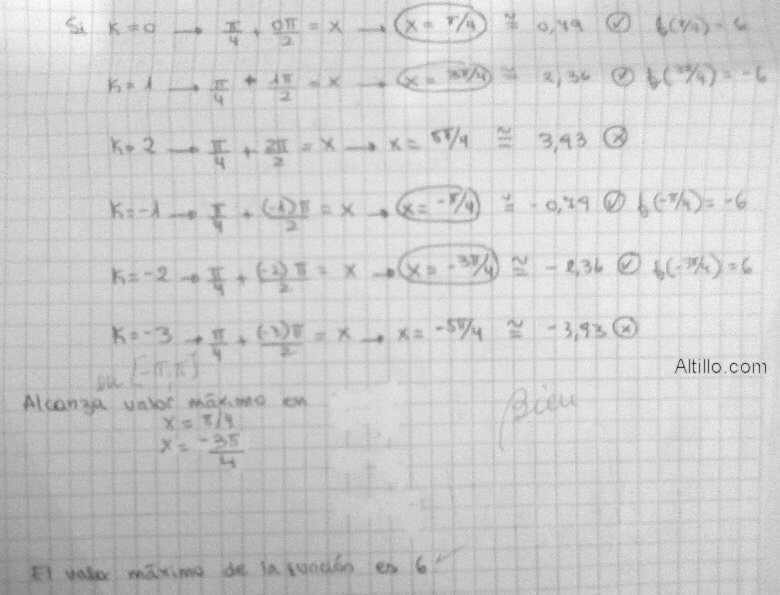 Si K=0 → π/4 + 0π/2 = x → x = π/4 ≅ 0,79 ✓ f(π/4) = 6
K=1 → π/4 + 1π/2 = x → x = 3π/4 ≅ 2,36 ✓ f(3π/4) = -6
K=2 → π/4 + 2π/2 = x → x = 5π/4 ≅ 3,93 ⓧ
K=-1 → π/4 + (-1)π/2 = x → x = -π/4 ≅ -0,79 ✓ f(-π/4) = -6
K=-2 → π/4 + (-2)π/2 = x → x = -3π/4 ≅ -2,36 ✓ f(-3π/4) = 6
K=-3 → π/4 + (-3)π/2 = x → x = -5π/4 ≅ -3,93 ⓧ
Altillo.com
en [-π,π]
Alcanza valor máximo en
x = π/4
x = -3π/4
Bien
El valor máximo de la función es 6